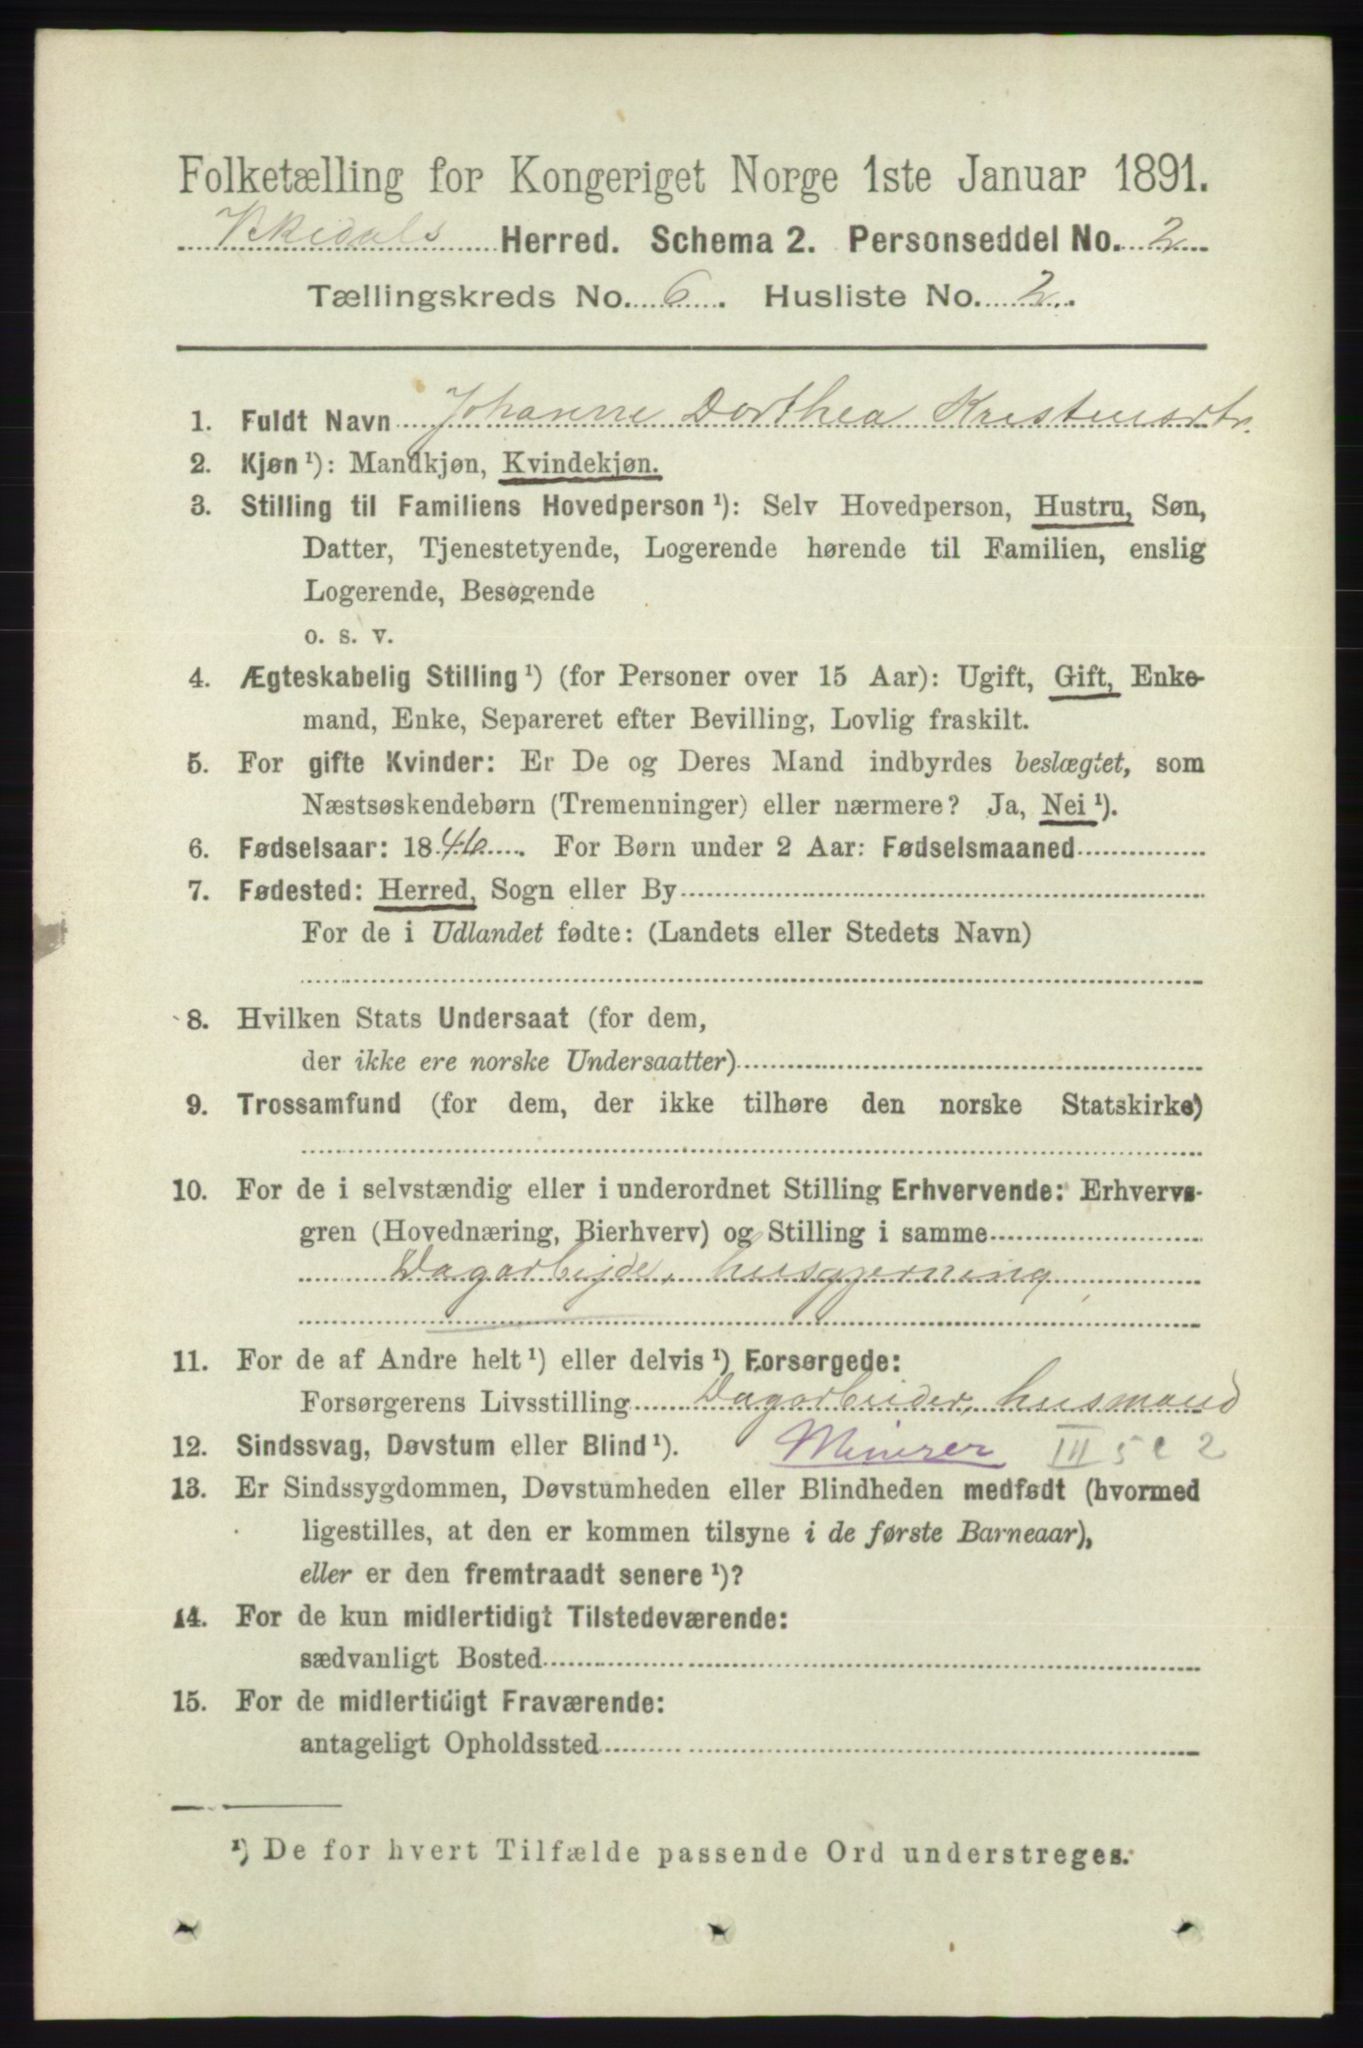 Folketælling for Kongeriget Norge 1ste Januar 1891.
Vikedals Herred. Schema 2. Personseddel No. 2
Tællingskreds No. 6. Husliste No. 2.
1. Fuldt Navn Johanne Dorthea Kristensdtr.
2. Kjøn ¹): Mandkjøn, Kvindekjøn.
3. Stilling til Familiens Hovedperson ¹): Selv Hovedperson, Hustru, Søn,
Datter, Tjenestetyende, Logerende hørende til Familien, enslig
Logerende, Besøgende
o. s. v.
4. Ægteskabelig Stilling ¹) (for Personer over 15 Aar): Ugift, Gift, Enke-
mand, Enke, Separeret efter Bevilling, Lovlig fraskilt.
5. For gifte Kvinder: Er De og Deres Mand indbyrdes beslægtet, som
Næstsøskendebørn (Tremenninger) eller nærmere? Ja, Nei ¹).
6. Fødselsaar: 1846. For Børn under 2 Aar: Fødselsmaaned
7. Fødested: Herred, Sogn eller By
For de i Udlandet fødte: (Landets eller Stedets Navn)
8. Hvilken Stats Undersaat (for dem,
der ikke ere norske Undersaatter)
9. Trossamfund (for dem, der ikke tilhøre den norske Statskirke)
10. For de i selvstændig eller i underordnet Stilling Erhvervende: Erhvervs-
gren (Hovednæring, Bierhverv) og Stilling i samme
Dagarbejde, husgjerning
11. For de af Andre helt ¹) eller delvis ¹) Forsørgede:
Forsørgerens Livsstilling Dagarbeider, husmand
12. Sindssvag, Døvstum eller Blind ¹). Minerer III 5 c 2
13. Er Sindssygdommen, Døvstumheden eller Blindheden medfødt (hvormed
ligestilles, at den er kommen tilsyne i de første Barneaar),
eller er den fremtraadt senere ¹)?
14. For de kun midlertidigt Tilstedeværende:
sædvanligt Bosted
15. For de midlertidigt Fraværende:
antageligt Opholdssted
¹) De for hvert Tilfælde passende Ord understreges.